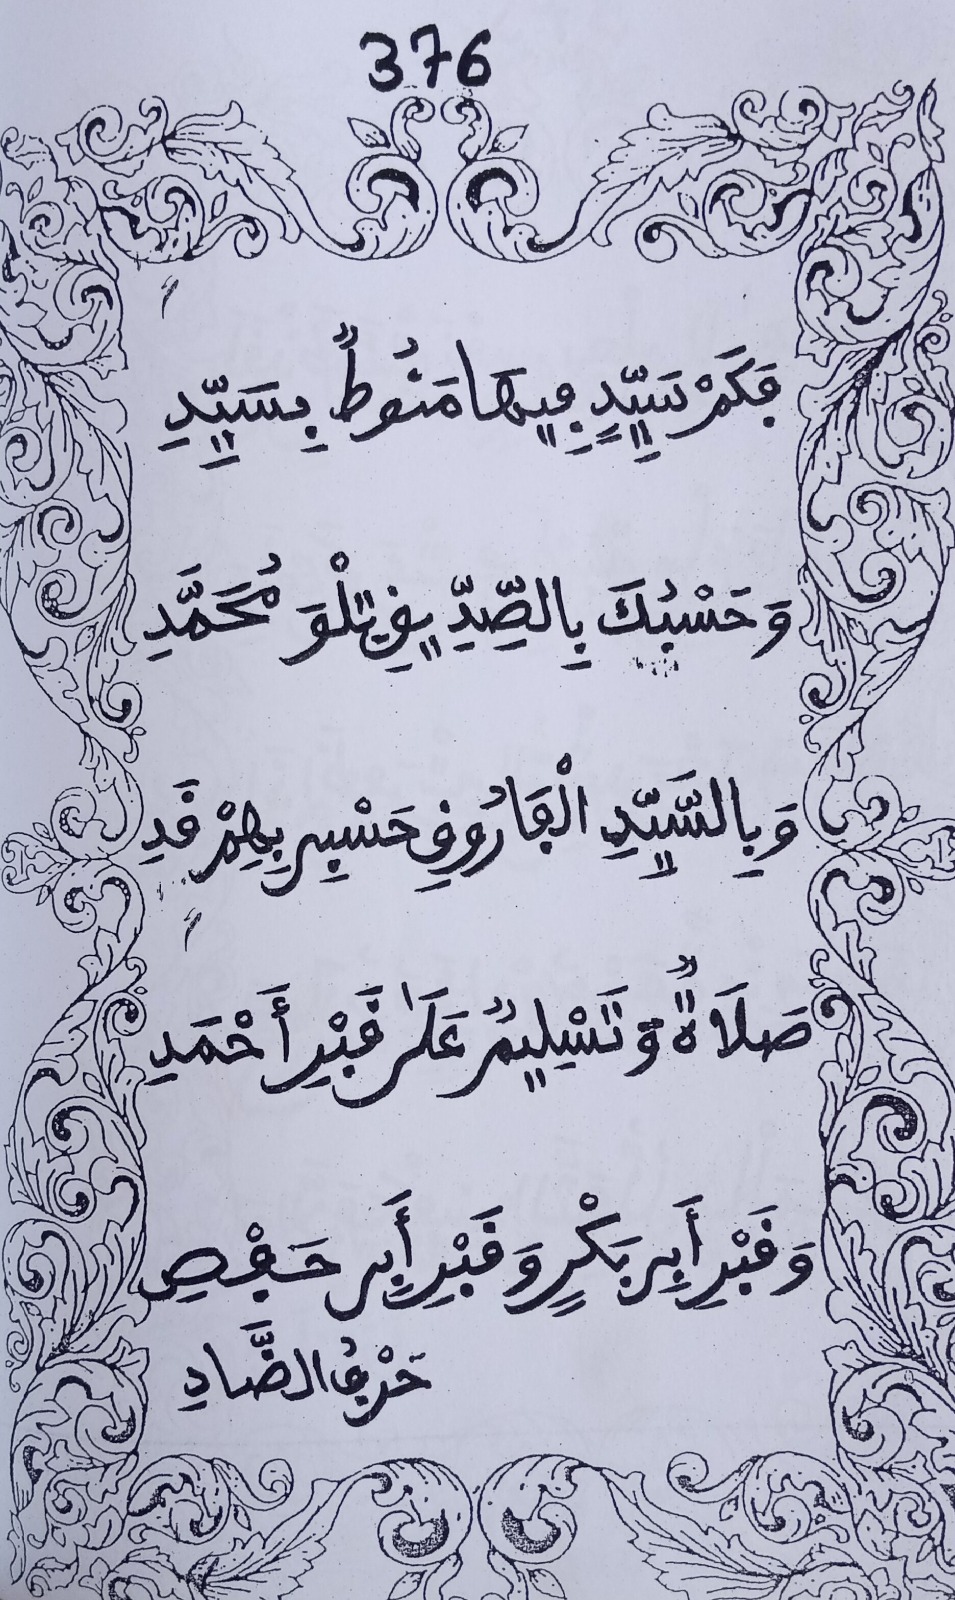 376
فَكَمْ سَيِّدٍ فِيهَا مَنُوطٌ بِسَيِّدِ
وَحَسْبُكَ بِالصِّدِّيقِ تِلْوَ مُحَمَّدِ
وَبِالسَّيِّدِ الْفَارُوقِ حَسْبِي بِهِمْ قَدِ
صَلَاةٌ وَتَسْلِيمٌ عَلَى قَبْرِ أَحْمَدِ
وَقَبْرِ أَبِي بَكْرٍ وَقَبْرِ أَبِي حَفْصِ
حَرْفُ الضَّادِ